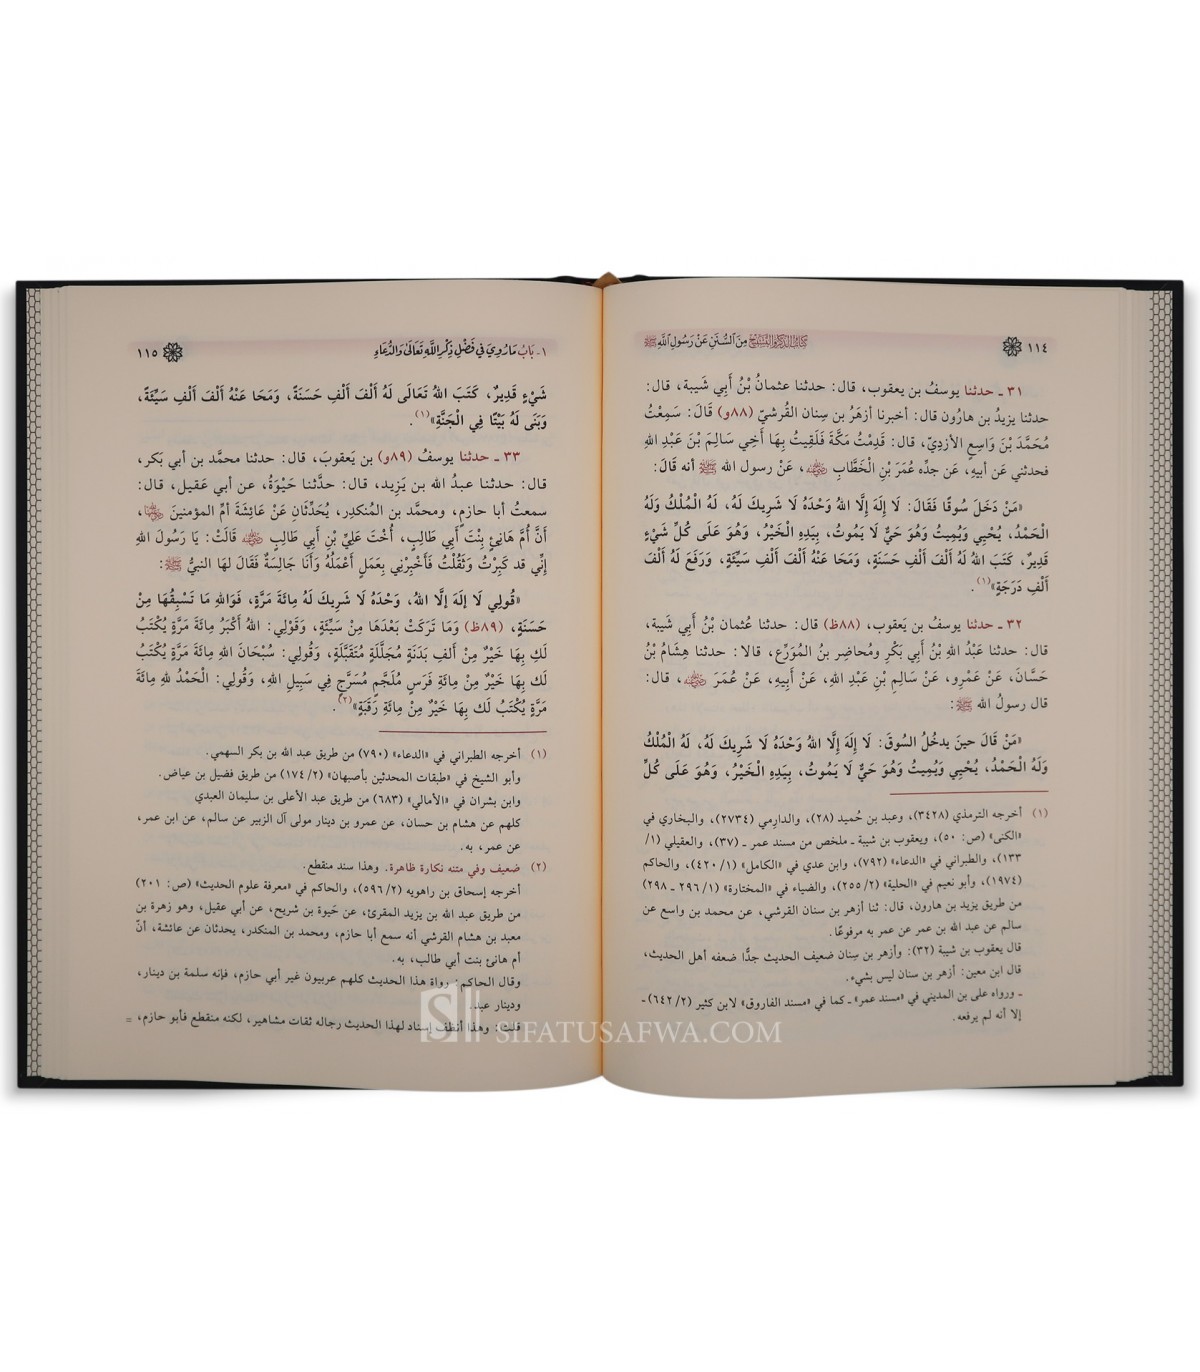 ١١٤ كتاب الذكر المستخرج من السنن عن رسول الله ﷺ
٣١ ـ حدثنا يوسفُ بن يعقوب، قال: حدثنا عثمانُ بْنُ أَبِي شَيبة، قال:
حدثنا يزيدُ بن هارُون قال: أخبرنا أزهَرُ بن سِنان القُرشيّ (٨٨و) قَالَ: سَمِعْتُ
مُحَمَّدَ بْنَ وَاسِعٍ الأزديَّ، قال: قَدِمْتُ مَكَّةَ فَلَقِيتُ بهَا أَخِي سَالِمَ بْنَ عَبْدِ اللهِ
فحدثني عَن أبيهِ، عَن جدِّه عُمَرَ بْنِ الْخَطَّابِ رضي الله عنه، عَنْ رسول الله ﷺ أنه قَالَ:
«مَنْ دَخَلَ سُوقًا فَقَالَ: لَا إِلَهَ إِلَّا اللهُ وَحْدَهُ لَا شَرِيكَ لَهُ، لَهُ الْمُلْكُ وَلَهُ
الْحَمْدُ، يُحْيِي وَيُمِيتُ وَهُوَ حَيٌّ لَا يَمُوتُ، بِيَدِهِ الْخَيْرُ، وَهُوَ عَلَى كُلِّ شَيْءٍ
قَدِيرٌ، كَتَبَ اللهُ لَهُ أَلْفَ أَلْفِ حَسَنَةٍ، وَمَحَا عَنْهُ أَلْفَ أَلْفِ سَيِّئَةٍ، وَرَفَعَ لَهُ أَلْفَ
أَلْفِ دَرَجَةٍ»(١).
٣٢ ـ حدثنا يوسفُ بن يَعقوب، (٨٨ظ) قال: حدثنا عُثمان بْنُ أَبِي شَيبة،
قال: حدثنا عَبْدُ اللهِ بْنُ أَبِي بَكْرٍ ومُحاضِر بنُ المُوَرِّع، قالا: حدثنا هِشَامُ بْنُ
حَسَّانَ، عَنْ عَمْرٍو، عَنْ سَالِمِ بْنِ عَبْدِ اللهِ، عَنْ أَبِيهِ، عَنْ عُمَرَ رضي الله عنه، قال:
قال رسولُ الله ﷺ:
«مَنْ قَالَ حينَ يدخُلُ السُوقَ: لَا إِلَهَ إِلَّا اللهُ وَحْدَهُ لَا شَرِيكَ لَهُ، لَهُ الْمُلْكُ
وَلَهُ الْحَمْدُ، يُحْيِي وَيُمِيتُ وَهُوَ حَيٌّ لَا يَمُوتُ، بِيَدِهِ الْخَيْرُ، وَهُوَ عَلَى كُلِّ
(١) أخرجه الترمذي (٣٤٢٨)، وعبد بن حُميد (٢٨)، والدارِمي (٢٧٣٤)، والبخاري في
«الكنى» (ص: ٥٠)، ويعقوب بن شيبة ـ ملخص من مسند عمر ـ (٣٧)، والعقيلي (١/
١٣٣)، والطبراني في «الدعاء» (٧٩٢)، وابن عدي في «الكامل» (١/ ٤٢٠)، والحاكم
(١٩٧٤)، وأبو نعيم في «الحلية» (٢/ ٢٥٥)، والضياء في «المختارة» (١/ ٢٩٦ ـ ٢٩٨)
من طريق يزيد بن هارون، قال: ثنا أزهر بن سنان القرشي، عن محمد بن واسع عن
سالم عن عبد الله بن عمر عن عمر به مرفوعًا.
قال يعقوب بن شيبة (٣٢): وأزهر بن سِنان ضعيف الحديث جدًّا ضعفه أهل الحديث،
قال ابن معين: أزهر بن سنان ليس بشيء.
ـ ورواه علي بن المديني في «مسند عمر» ـ كما في «مسند الفاروق» لابن كثير (٢/ ٦٤٢) ـ
إلا أنه لم يرفعه.
١ـ بَابُ مَا رُوِيَ فِي فَضْلِ ذِكْرِ اللهِ تَعَالَى وَالدُّعَاءِ ١١٥
شَيْءٍ قَدِيرٌ، كَتَبَ اللهُ تَعَالَى لَهُ أَلْفَ أَلْفِ حَسَنَةً، وَمَحَا عَنْهُ أَلْفَ أَلْفِ سَيِّئَةً،
وَبَنَى لَهُ بَيْتًا فِي الْجَنَّةِ»(١).
٣٣ ـ حدثنا يوسفُ (٨٩و) بن يَعقوبَ، قال: حدثنا محمَّد بن أبي بَكر،
قال: حدثنا عبدُ الله بن يَزِيد، قال: حدَّثنا حَيْوَةُ، عن أبي عَقيل، قال:
سمعتُ أبا حازمٍ، ومحمَّد بن المُنكدِر، يُحَدِّثَانِ عَنْ عَائِشَةَ أمِّ المؤمنينَ رضي الله عنها،
أَنَّ أُمَّ هَانِئٍ بِنْتَ أَبِي طَالِبٍ، أُخْتَ عَلِيِّ بْنِ أَبِي طَالِبٍ رضي الله عنه قَالَتْ: يَا رَسُولَ اللهِ
إِنِّي قد كَبِرْتُ وَثَقُلْتُ فَأَخْبِرْنِي بِعَمَلٍ أَعْمَلُهُ وَأَنَا جَالِسَةٌ فَقَالَ لهَا النبيُّ ﷺ:
«قُولِي لَا إِلَهَ إِلَّا اللهُ، وَحْدَهُ لَا شَرِيكَ لَهُ مِائَةَ مَرَّةٍ، فَوَاللهِ مَا تَسْبِقُهَا مِنْ
حَسَنَةٍ، (٨٩ظ) وَمَا تَرَكَتْ بَعْدَهَا مِنْ سَيِّئَةٍ، وَقُولِي: اللهُ أَكْبَرُ مِائَةَ مَرَّةٍ يُكْتَبُ
لَكِ بِهَا خَيْرٌ مِنْ أَلفِ بَدَنَةٍ مُجَلَّلَةٍ مُتَقَبَّلَةٍ، وَقُولِي: سُبْحَانَ اللهِ مِائَةَ مَرَّةٍ يُكْتَبُ
لَكِ بِهَا خَيْرٌ مِنْ مِائَةِ فَرَسٍ مُلَجَّمٍ مُسَرَّجٍ فِي سَبِيلِ اللهِ، وَقُولِي: الْحَمْدُ لله مِائَةَ
مَرَّةٍ يُكْتَبُ لَك بِهَا خَيْرٌ مِنْ مِائَةِ رَقَبَةٍ»(٢).
(١) أخرجه الطبراني في «الدعاء» (٧٩٠) من طريق عبد الله بن بكر السهمي.
وأبو الشيخ في «طبقات المحدثين بأصبهان» (٢/ ١٧٤) من طريق فضيل بن عياض.
وابن بشران في «الأمالي» (٦٨٣) من طريق عبد الأعلى بن سليمان العبدي
كلهم عن هشام بن حسان، عن عمرو بن دينار مولى آل الزبير عن سالم، عن ابن عمر،
عن عمر، به.
(٢) ضعيف وفي متنه نكارة ظاهرة. وهذا سند منقطع.
أخرجه إسحاق بن راهويه (٢/ ٥٩٦)، والحاكم في «معرفة علوم الحديث» (ص: ٢٠١)
من طريق عبد الله بن يزيد المقرئ، عن حَيوة بن شريح، عن أبي عقيل، وهو زهرة بن
معبد بن هشام القرشي أنه سمع أبا حازم، ومحمد بن المنكدر، يحدثان عن عائشة، أنّ
أم هانئ بنت أبي طالب، به.
وقال الحاكم: رواة هذا الحديث كلهم عربيون غير أبي حازم، فإنه سلمة بن دينار،
ودينار عبد.
قلت: وهذا أنظف إسناد لهذا الحديث رجاله ثقات مشاهير، لكنه منقطع فأبو حازم، =
SIFATUSAFWA.COM